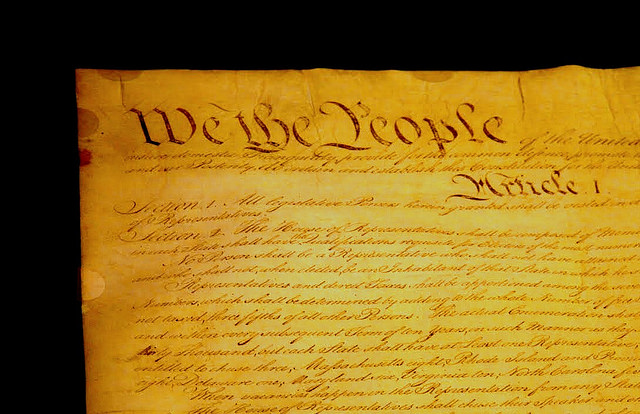 We the People of the United
insure domestic Tranquility, provide for the common defence, promote
and our Posterity, do ordain and establish this Constitution for the
Article. I.
Section. 1. All legislative Powers herein granted shall be vested in
of Representatives.
Section. 2. The House of Representatives shall be composed of Mem
in each State shall have the Qualifications requisite for Electors of the most num
No Person shall be a Representative who shall not have attained
and who shall not, when elected, be an Inhabitant of that State in which he
Representatives and direct Taxes shall be apportioned among the
Numbers, which shall be determined by adding to the whole Number of free
not taxed, three fifths of all other Persons. The actual Enumeration sha
and within every subsequent Term of ten Years, in such Manner as they
thirty Thousand, but each State shall have at Least one Representative
entitled to chuse three, Massachusetts eight, Rhode Island and Prov
eight, Delaware one, Maryland six, Virginia ten, North Carolina fi
When vacancies happen in the Representation from any Sta
The House of Representatives shall chuse their Speaker and